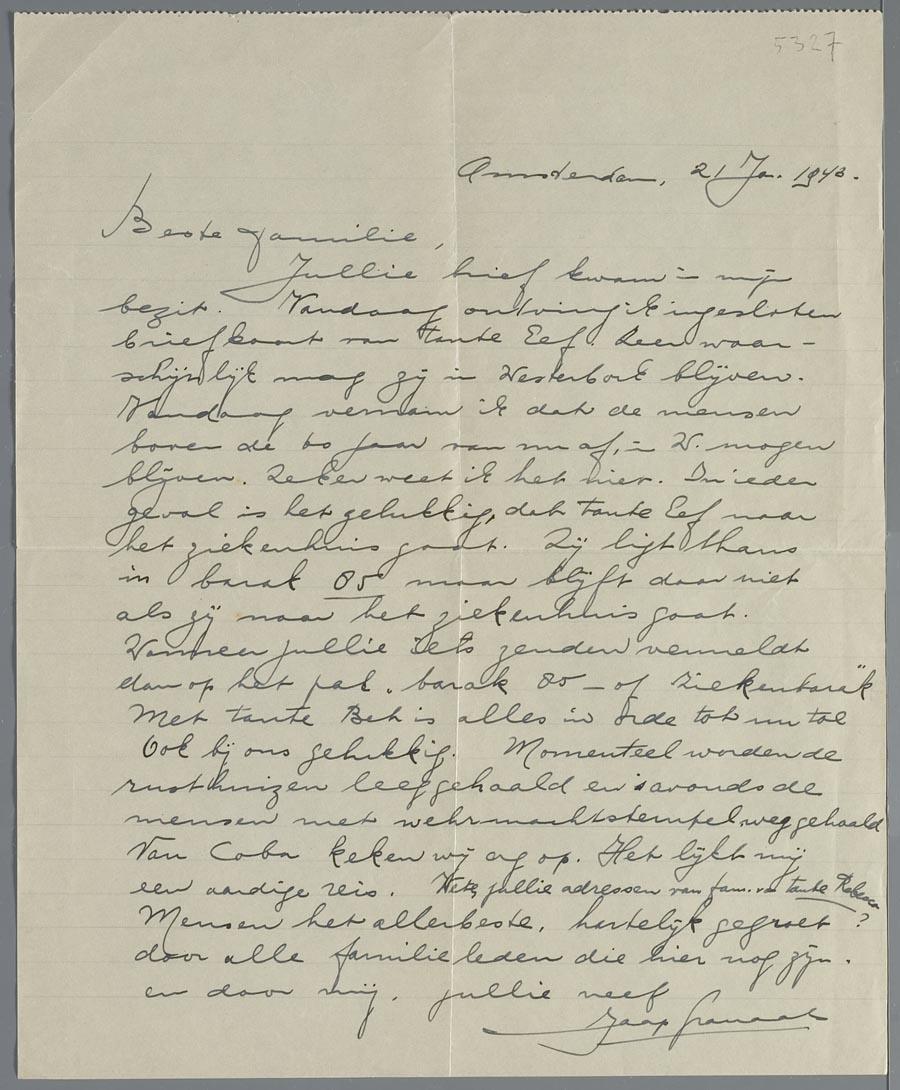 5327
Amsterdam, 21 Ja. 1943.
Beste familie,
Jullie brief kwam in mijn
bezit. Vandaag ontving ik ingesloten
briefkaart van tante Eef. Zeer waar-
schijnlijk mag zij in Westerbork blijven.
Vandaag vernam ik dat de mensen
boven de 60 jaar van nu af, in W. mogen
blijven. Zeker weet ik het niet. In ieder
geval is het gelukkig, dat tante Eef naar
het ziekenhuis gaat. Zij ligt thans
in barak 85 maar blijft daar niet
als zij naar het ziekenhuis gaat.
Wanneer jullie iets zenden vermeldt
dan op het pak. barak 85 - of Ziekenbarak
Met tante Beh is alles in orde tot nu toe
Ook bij ons gelukkig. Momenteel worden de
rusthuizen leeggehaald en 's avonds de
mensen met wehrmachtstempel weggehaald
Van Coba keken wij erg op. Het lijkt mij
een aardige reis. Weten jullie adressen van fam. van tante Rebecca
?
Mensen het allerbeste, hartelijk gegroet
door alle familieleden die hier nog zijn.
en door mij, jullie neef
Jaap Granaat